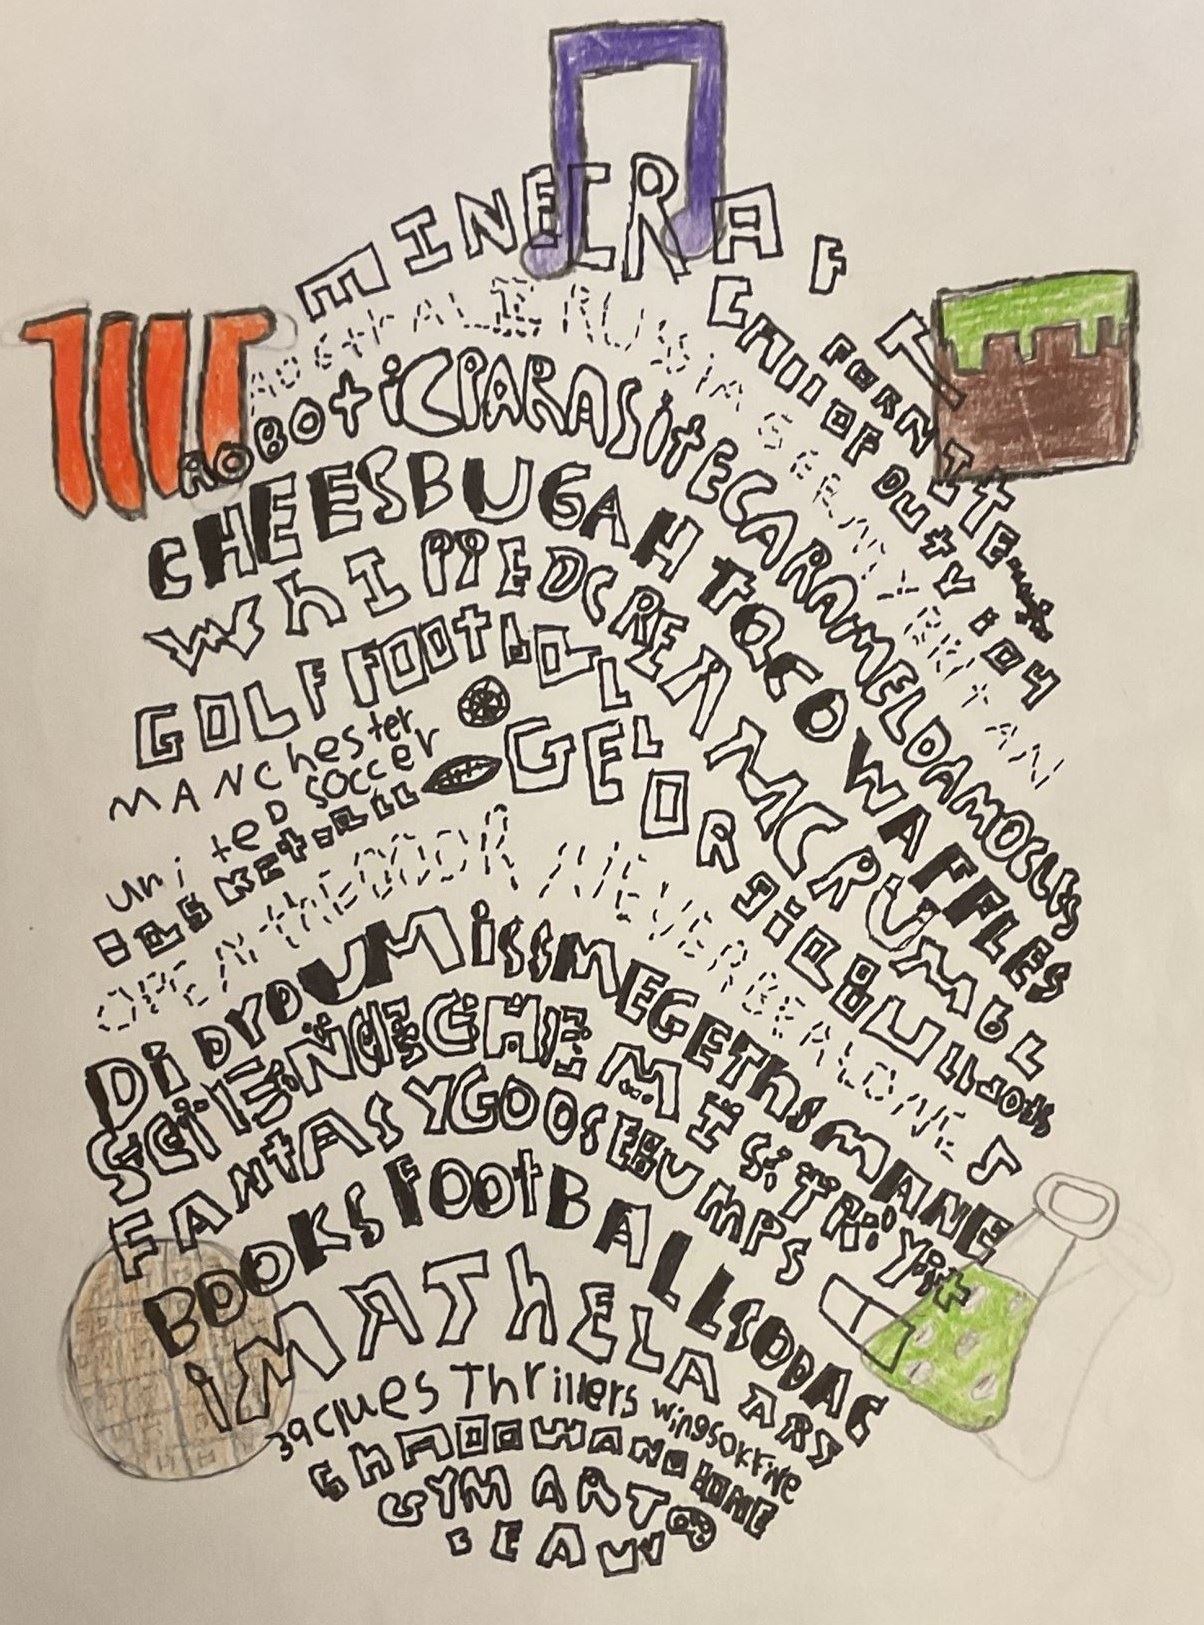 MINECRAFT
FORNITE
CALL OF DUTY:04
AUSTRALIE RUSSIA GERMNY BRITAN
ROBOTICPARASITECARAMELDAMOCLES
CHEESBUGAH TACO WAFFLES
WhIPPEDCREAM CRUMBL
GOLF FOOTbALL
GELLOR
MANchester
uniteD soccer
BASKETBALL
OPENTHEDOOR NEVERBEALONE
DiDYOUMissMEGEThSMANE
SCIENCE CHEMISTRY
FANtASYGOOSEBUMPS
BOOKSFOOtBALLSODAS
MATh ELA ARS
39clues Thrillers WingsOfFire
ShADOW AND BONE
GYM ART
BEAU